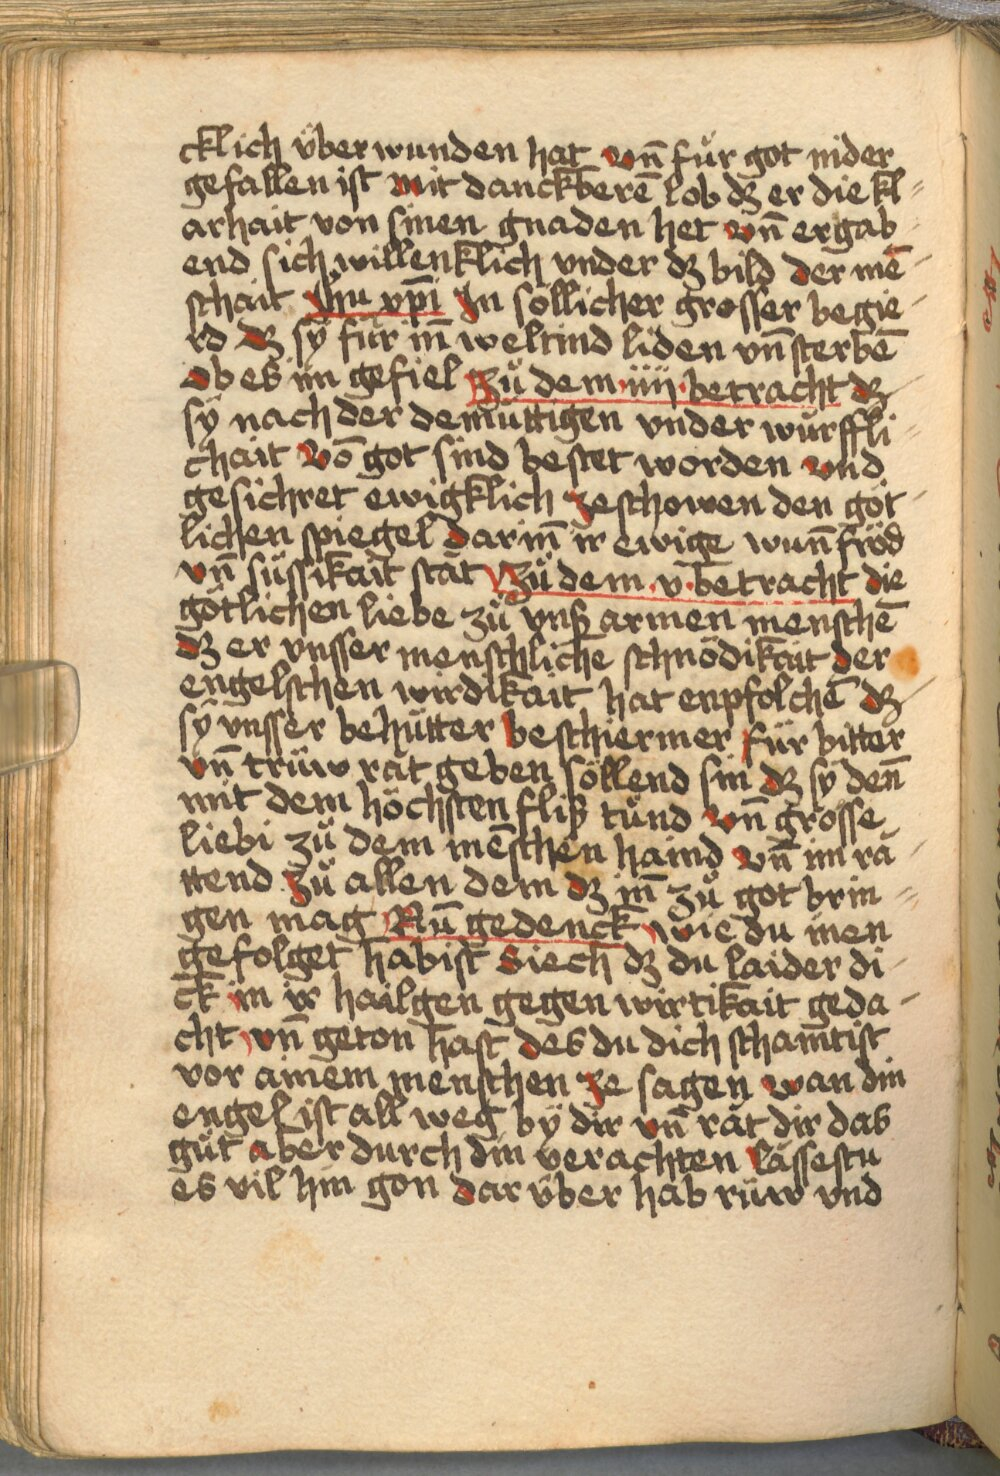 cklich über wunden hat vn̄ für got nider
gefallen ist mit danckberē lob dʒ er die kl-
arhait von sinen gnaden het vn̄ ergab-
end sich willenklich vnder dʒ bild der mē-
schait Jhu xp̄i Jn sollicher grosser begie-
rd dʒ sÿ für in̄ weltind liden vn̄ sterbē
ob es im gefiel Zů dem ·iiij· betracht dʒ
sÿ nach der demüttigen vnder würffli-
chait vō got sind bestet worden vnd
gesichret ewigklich ze schowen den göt-
lichen spiegel darin̄ ir ewige wun̄ fröd
vn̄ süssikait stāt Zů dem ·v· betracht die
götlichen liebe zů vnß armen menschē
dʒ er vnsser menschliche schnödikait der
engelschen wirdikait hat enpfolchē dʒ
sÿ vnsser behütter beschiermer für bitter
vn̄ trüw rāt geben söllend sin dʒ sÿ den̄
mit dem höchsten fliß tůnd vn̄ grosse
liebi zů dem mēschen haind vn̄ im rā-
ttend Zů allen dem dʒ in̄ zů got brin-
gen mag Nū gedenck wie du inen
gefolget habist Siech dʒ du laider di-
ck in ir hailgen gegen wirtikait geda-
cht vn̄ geton hast des du dich schamtist
vor ainem menschen ze sagen wan din
engel ist all weg bÿ dir vn̄ rāt dir das
gůt aber durch din verachten lässestu
es vil hin gon dar über hab rüw vnd